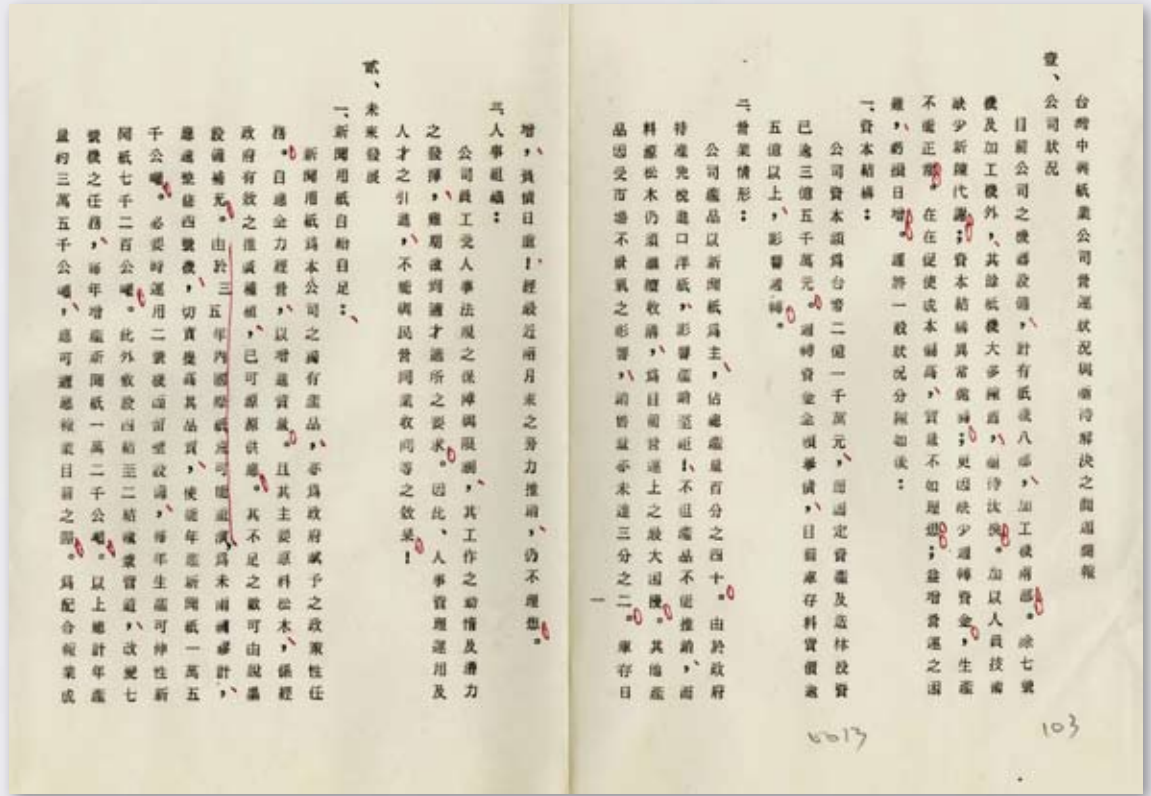 台灣中興紙業公司營運狀況與亟待解決之問題簡報
壹、公司狀況
目前公司之機器設備，計有紙機八部，加工機兩部。除七號
機及加工機外，其餘紙機大多陳舊，亟待汰換。加以人員技術
缺少新陳代謝；資本結構異常薄弱；更因缺少週轉資金，生產
不能正常。在在促使成本偏高，質量不如理想；益增營運之困
難，必須日增。謹將一般狀況分陳如後：
一、資本結構：
公司資本額為台幣二億一千萬元，而固定資產及造林投資
已逾三億五千萬元。週轉資金全須舉債，目前庫存料貨價逾
五億以上，影響週轉。
二、營業情形：
公司產品以新聞紙為主，佔總產量百分之四十。由於政府
特准免稅進口洋紙，影響產銷至鉅！不但產品不能推銷，而
料源松木仍須繼續收購，為目前營運上之最大困擾。其他產
品因受市場不景氣之影響，銷售量亦未達三分之二。庫存日
一
增，負債日重！經最近兩月來之努力推銷，仍不理想。
三、人事組織：
公司員工受人事法規之保障與限制，其工作之勤惰及潛力
之發揮，難期達到適才適所之要求。因此、人事管理運用及
人才之引進，不能與民營同業收同等之效果！
貳、未來發展
一、新聞用紙自給自足：
新聞用紙為本公司之獨有產品，亦為政府賦予之政策性任
務。自應全力經營，以增進質量。且其主要原料松木，係經
政府有效之推廣補植，已可源源供應。其不足之數可由說蟲
設備補充。由於三五年內國際紙漿可能 為未雨綢繆計，
應速整修四號機，切實提高其品質，使能年產新聞紙一萬五
千公噸。必要時運用二號機 設備，每年生產可伸性新
聞紙七千二百公噸。此外 敷設四結至二結 管道，改變七
號機之任務，每年增產新聞紙一萬二千公噸。以上總計年產
量約三萬五千公噸，應可適應報業目前之需。為配合報業成
103
0013